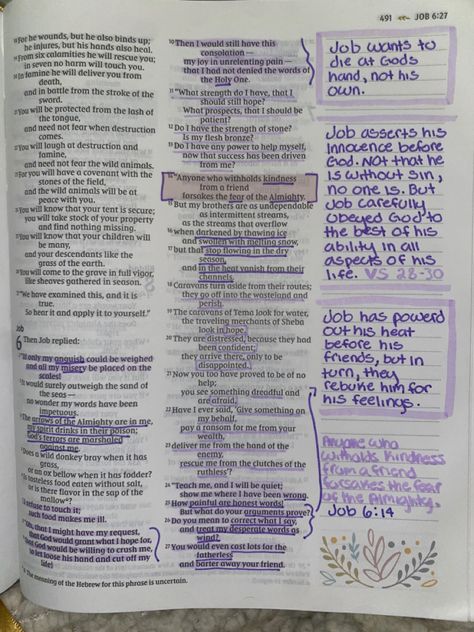 491 JOB 6:27
18 For he wounds, but he also binds up;
he injures, but his hands also heal.
19 From six calamities he will rescue you;
in seven no harm will touch you.
20 In famine he will deliver you from
death,
and in battle from the stroke of the
sword.
21 You will be protected from the lash of
the tongue,
and need not fear when destruction
comes.
22 You will laugh at destruction and
famine,
and need not fear the wild animals.
23 For you will have a covenant with the
stones of the field,
and the wild animals will be at
peace with you.
24 You will know that your tent is secure;
you will take stock of your property
and find nothing missing.
25 You will know that your children will
be many,
and your descendants like the
grass of the earth.
26 You will come to the grave in full vigor,
like sheaves gathered in season.
27 "We have examined this, and it is
true.
So hear it and apply it to yourself."
Job
6 Then Job replied:
2 "If only my anguish could be weighed
and all my misery be placed on the
scales!
3 It would surely outweigh the sand of
the seas —
no wonder my words have been
impetuous.
4 The arrows of the Almighty are in me,
my spirit drinks in their poison;
God's terrors are marshaled
against me.
5 Does a wild donkey bray when it has
grass,
or an ox bellow when it has fodder?
6 Is tasteless food eaten without salt,
or is there flavor in the sap of the
mallow?
7 I refuse to touch it;
such food makes me ill.
8 "Oh, that I might have my request,
that God would grant what I hope for,
9 that God would be willing to crush me,
to let loose his hand and cut off my
life!
10 Then I would still have this
consolation —
my joy in unrelenting pain —
that I had not denied the words of
the Holy One.
11 "What strength do I have, that I
should still hope?
What prospects, that I should be
patient?
12 Do I have the strength of stone?
Is my flesh bronze?
13 Do I have any power to help myself,
now that success has been driven
from me?
14 "Anyone who withholds kindness
from a friend
forsakes the fear of the Almighty.
15 But my brothers are as undependable
as intermittent streams,
as the streams that overflow
16 when darkened by thawing ice
and swollen with melting snow,
17 but that stop flowing in the dry
season,
and in the heat vanish from their
channels.
18 Caravans turn aside from their routes;
they go off into the wasteland and
perish.
19 The caravans of Tema look for water,
the traveling merchants of Sheba
look in hope.
20 They are distressed, because they had
been confident;
they arrive there, only to be
disappointed.
21 Now you too have proved to be of no
help;
you see something dreadful and
are afraid.
22 Have I ever said, 'Give something on
my behalf,
pay a ransom for me from your
wealth,
23 deliver me from the hand of the
enemy,
rescue me from the clutches of the
ruthless'?
24 "Teach me, and I will be quiet;
show me where I have been wrong.
25 How painful are honest words!
But what do your arguments prove?
26 Do you mean to correct what I say,
and treat my desperate words as
wind?
27 You would even cast lots for the
fatherless
and barter away your friend.
The meaning of the Hebrew for this phrase is uncertain.
Job wants to
die at Gods
hand, not his
own.
Job asserts his
innocence before
God. Not that he
is without sin,
no one is. But
Job carefully
obeyed God to
the best of his
ability in all
aspects of his
life. VS 28-30
Job has powerd
out his heat
before his
friends, but in
turn, they
rebuke him for
his feelings.
Anyone who
witholds Kindness
from a friend
forsakes the fear
of the Almighty.
Job 6:14